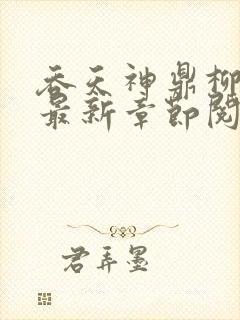 吞天神鼎柳
最新章节阅
君弄墨